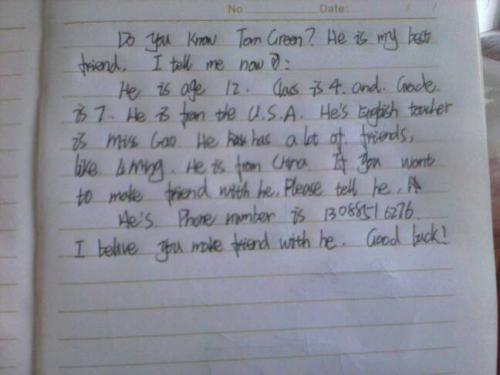 No: Date: / /
Do you know Tom Green? He is my best
friend. I tell me now:
He is age 12. Class is 4. and. Grade
is 7. He is from the U.S.A. He's English teacher
is miss Gao. He has a lot of friends,
like Liming. He is from China. If you want
to make friend with he. Please tell he.
He's. Phone number is 13088516276.
I belive you make friend with he. Good luck!